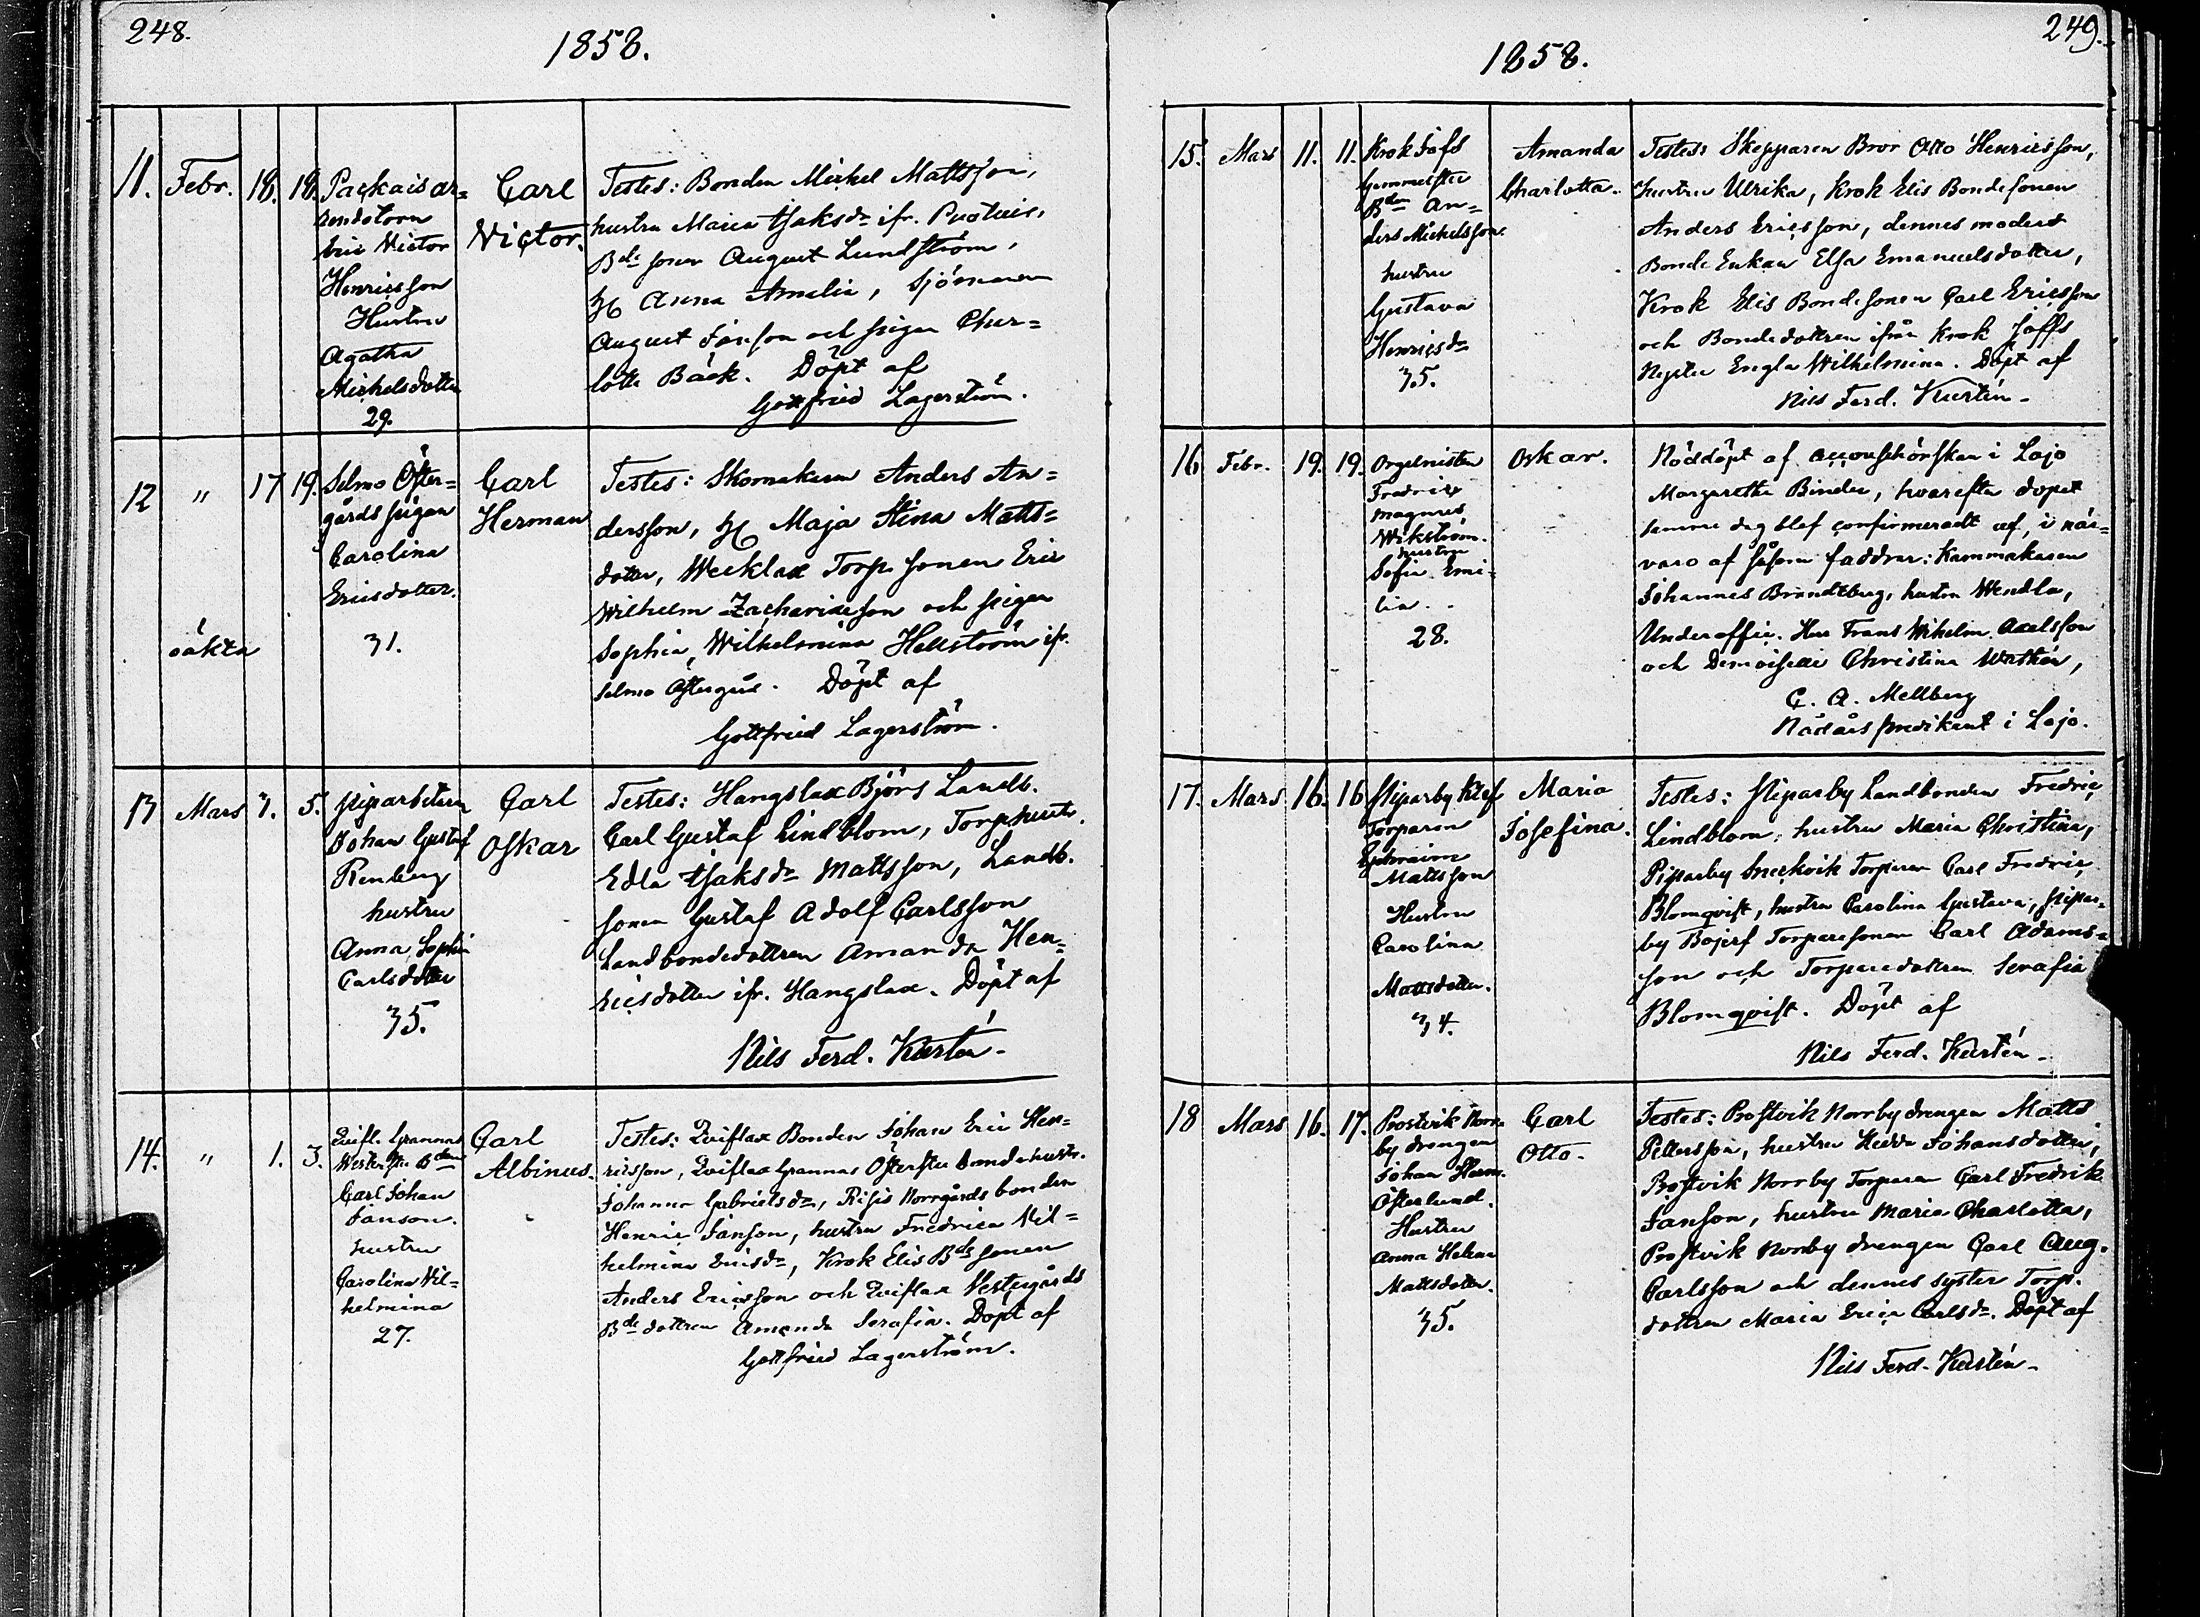 248.
1858.
11. Febr. 18. 18.
Packais ar=
rendatorn
Eric Victor
Henricsson
Hustru
Agatha
Michelsdotter
29.
Carl
Victor.
Testes: Bonden Michel Mattsson,
hustru Maria Isaksdr ifr.
Bde sonen August Lundström,
H Anna Amalia, Sjömannen
August Janson och pigan Char=
lotta Bäck. Döpt af
Gottfried Lagerström.
12 " 17 19.
oäkta
Selmo Öster=
gårds pigan
Carolina
Ericsdotter.
31.
Carl
Herman
Testes: Skomakaren Anders An=
dersson, H Maja Stina Matts=
dotter, Wecklax Torp. sonen Eric
Wilhelm Zachariasson och pigan
Sophia Wilhelmina Hellström ifr.
Selmo Östergård. Döpt af
Gottfried Lagerström.
13 Mars 3. 5.
Johan Gustaf
Renberg
hustru
Anna Sophia
Carlsdotter
35.
Carl
Oskar
Testes: Hangslax Björs Landb.
Carl Gustaf Lindblom, Torphustr.
Edla Isaksdr Mattsson, Landb.
sonen Gustaf Adolf Carlsson
Landbondedottren Amanda Hen=
ricsdotter ifr. Hangslax. Döpt af
Nils Ferd. Kurtén.
14. " 1. 3.
Qvifl. Grannas
Carl Johan
Janson.
hustru
Carolina Vil=
helmina
27.
Carl
Albinus.
Testes: Qviflax Bonden Johan Eric Hen=
ricsson, Qviflax Grannas Österstu Bondehustr.
Johanna Gabrielsdr, Risis Norrgårds bonden
Henric Janson, hustru Fredrica Vil=
helmina Ericsdr, Krok Elis Bde sonen
Anders Ericsson och Qviflax Vestergårds
Bde dottren Amanda Serafia. Döpt af
Gottfried Lagerström.
249.
1858.
15. Mars 11. 11.
Krok Jofs
Bden An=
ders Michelsson
hustru
Gustava
Henricsdr
35.
Amanda
Charlotta.
Testes: Skepparen Bror Otto Henricsson,
hustru Ulrika, Krok Elis Bondesonen
Anders Ericsson, dennes moder
Bonde Enkan Elsa Emanuelsdotter,
Krok Elis Bondesonen Carl Ericsson
och Bondedottren ifrån Krok Joffs
Nystu Engla Wilhelmina. Döpt af
Nils Ferd. Kurtén.
16 Febr. 19. 19.
Orgelnisten
Fredric
Magnus
Wikström.
hustru
Sofia Emi=
lia.
28.
Oskar.
Nöddöpt af accouschörskan i Lojo
Margaretha Binder, hvarefter dopet
samma dag blef confirmeradt af, i när=
varo af såsom faddrar: Kammakaren
Johannes Brandtberg, hustru Wendla,
Underoffic. Herr Frans Wilhelm Axelsson
och Demoiselle Christina Wathén,
C. A. Mellberg
Nådårspredikant i Lojo.
17. Mars 16. 16
Piparby Klef
Torparen
Ephraim
Mattsson
Hustru
Carolina
Mattsdotter.
34.
Maria
Josefina.
Testes: Piparby Landbonden Fredric
Lindblom, hustru Maria Christina,
Piparby Sneckvik Torparen Carl Fredric
Blomqvist, hustru Carolina Gustava, Pipar=
by Böjers Torparesonen Carl Adams=
son och Torparedottren Serafia
Blomqvist. Döpt af
Nils Ferd. Kurtén.
18 Mars 16. 17.
Prostvik Norr=
by drengen
Johan Herm.
Österlund.
Hustru
Anna Helena
Mattsdotter.
35.
Carl
Otto.
Testes: Prostvik Norrby drengen Matts
Pettersson, hustru Hedda Johansdotter,
Prostvik Norrby Torparen Carl Fredrik
Janson, hustru Maria Charlotta,
Prostvik Norrby drengen Carl Aug.
Carlsson och dennes syster Torp.
dottren Maria Erica Carlsdr. Döpt af
Nils Ferd. Kurtén.